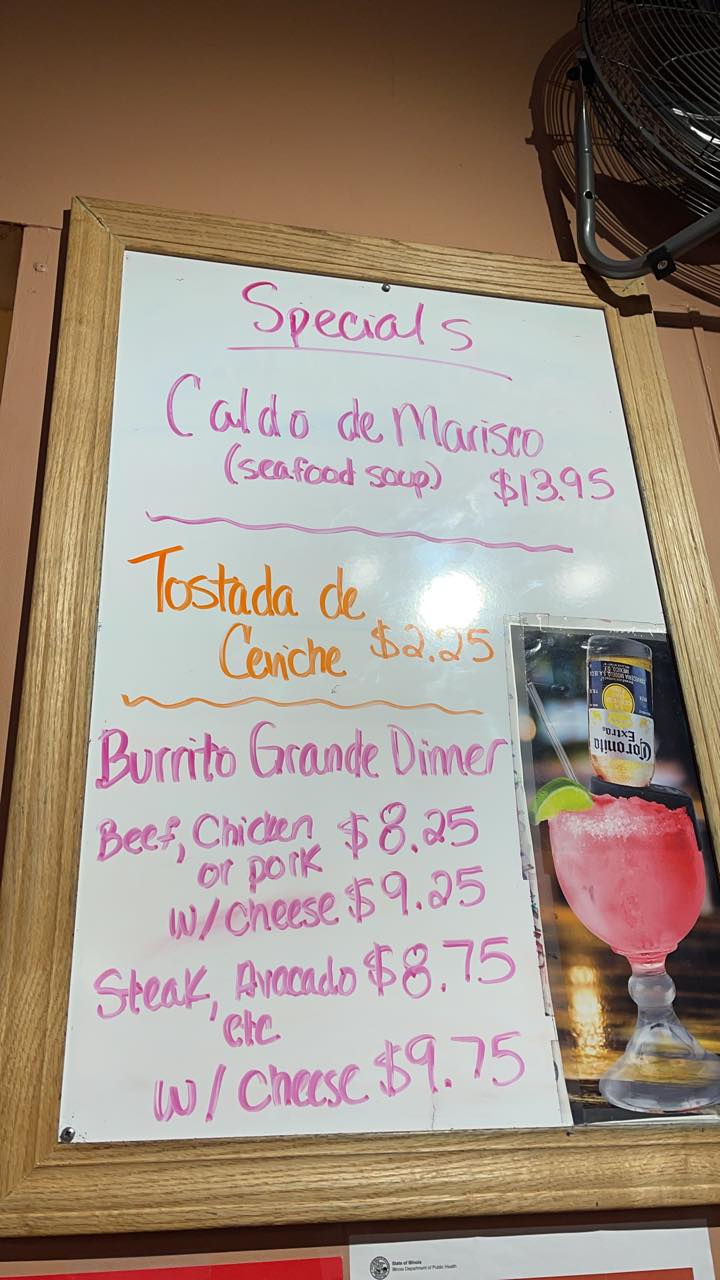 Specials
Caldo de Marisco
(seafood soup) $13.95
Tostada de
Ceviche $2.25
Burrito Grande Dinner
Beef, Chicken $8.25
or pork
w/cheese $9.25
Steak, Avocado $8.75
etc
w/ cheese $9.75
Coronita
Extra
State of Illinois
Illinois Department of Public Health